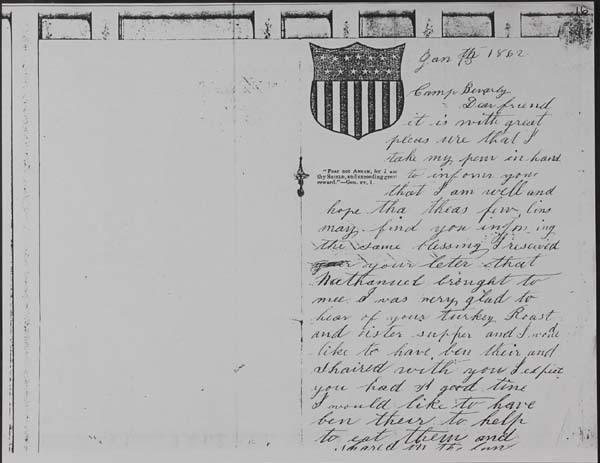 16
Jan 1862
Camp Beverly
Dear friend
it is with great
pleas ure that I
take my pen in hand
"Fear not ABRAM, for I am
thy SHIELD, and exceeding great
reward."—Gen. xv, 1.
to inform you
that I am well and
hope tha theas few lins
may find you injoy ing
the same blessing I reseived
your leter that
Nathanuel brought to
mee I was very glad to
hear of your turkey Roast
and oister supper and I would
like to have ben their and
shaired with you I expect
you had A good time
I would like to have
ben their to help
to eat them and
shared in the fun